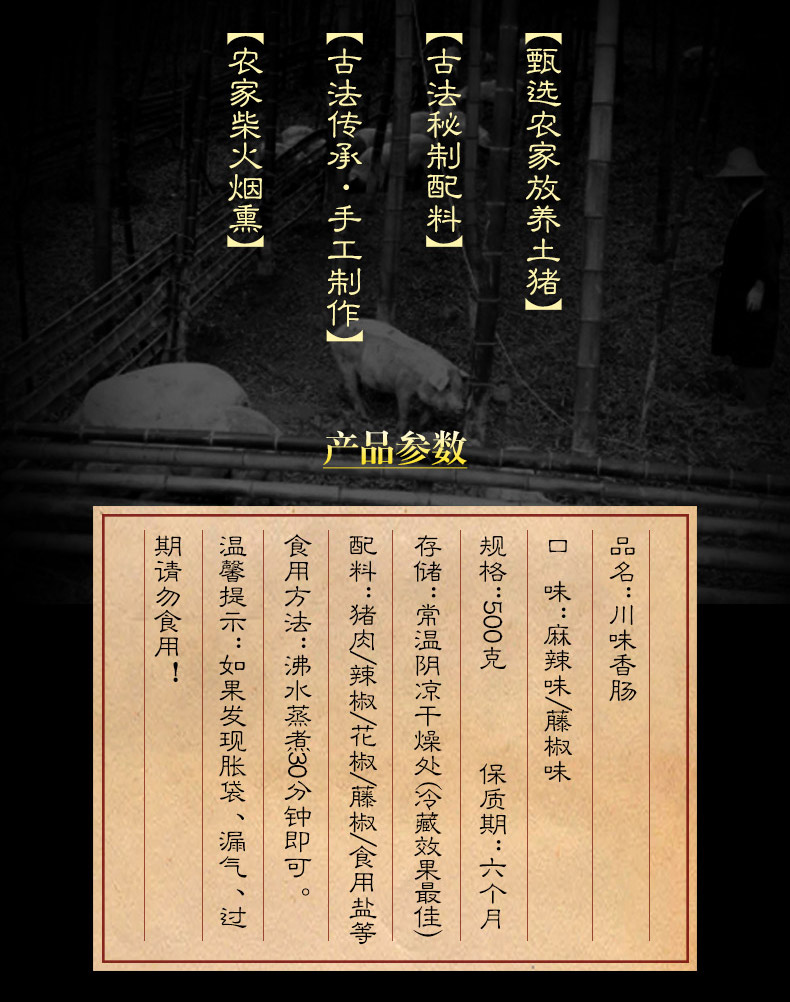 【甄选农家放养土猪】
【古法秘制配料】
【古法传承·手工制作】
【农家柴火烟熏】
产品参数
品名：川味香肠
口 味：麻辣味/藤椒味
规格：500克 保质期：六个月
存储：常温阴凉干燥处(冷藏效果最佳)
配料：猪肉/辣椒/花椒/藤椒/食用盐等
食用方法：沸水蒸煮30分钟即可。
温馨提示：如果发现胀袋、漏气、过
期请勿食用！